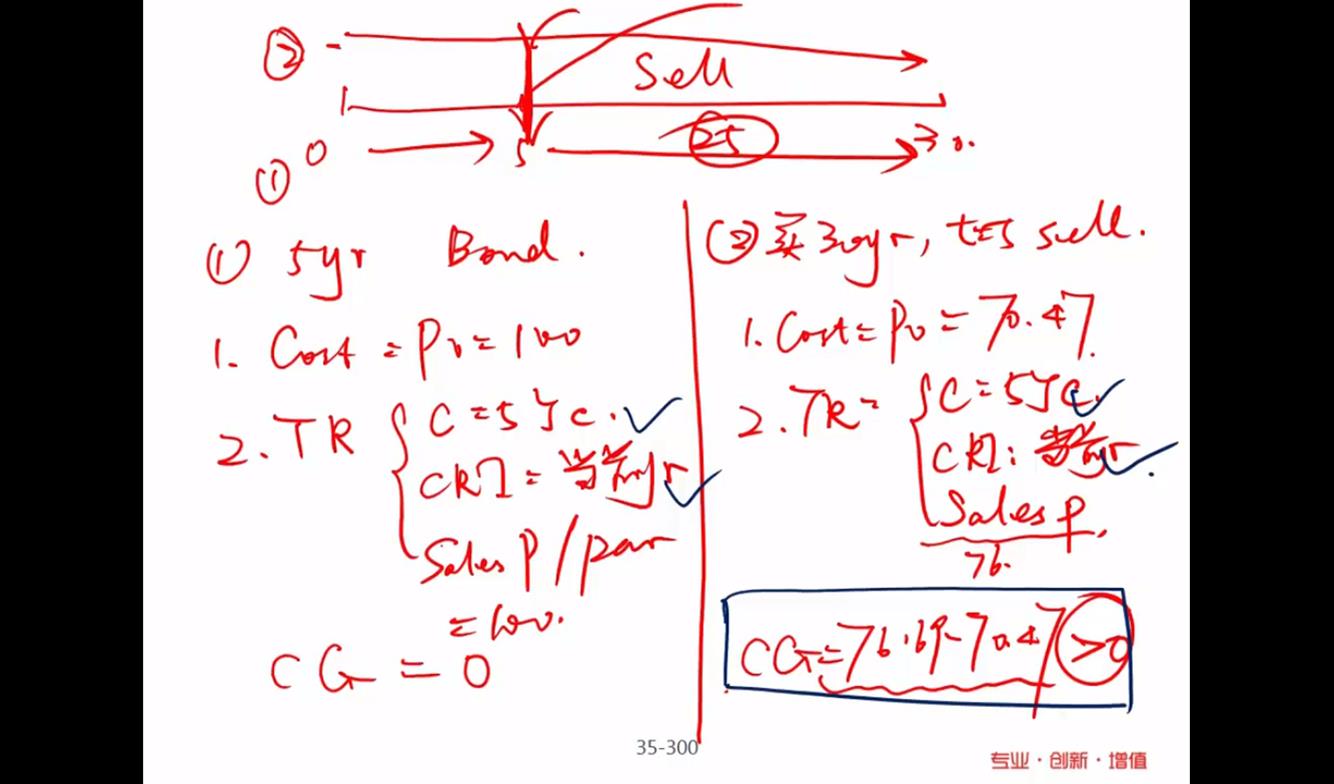 ②
Sell
① 0 5 25 30.
① 5yr Bond.
1. Cost = P0 = 100
2. TR
C = 5笔 C.
CRI = 当前yr
Sales P / par
= 100.
CG = 0
② 买30yr, t=5 sell.
1. Cost = P0 = 70.47
2. TR =
C = 5笔 C.
CRI: 当前yr.
Sales P.
76.
CG = 76.69 - 70.47 > 0
35-300
专业·创新·增值